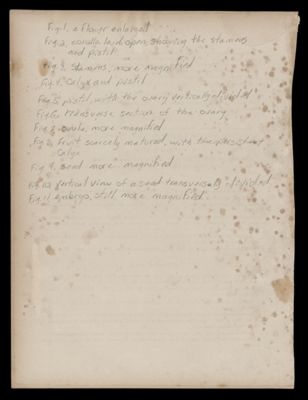 Fig 1. a flower enlarged
Fig. 2. corolla laid open, showing the stamens
and pistil
Fig. 3. Stamens, more magnified
Fig. 4. Calyx and pistil
Fig. 5. pistil, with the ovary vertically divided
Fig. 6. transverse section of the ovary
Fig. 7. ovule, more magnified
Fig. 8. fruit scarcely matured, with the persistent
Calyx
Fig. 9. seed more magnified
Fig. 10. vertical view of a seed transversally divided
Fig. 11. embryo, still more magnified